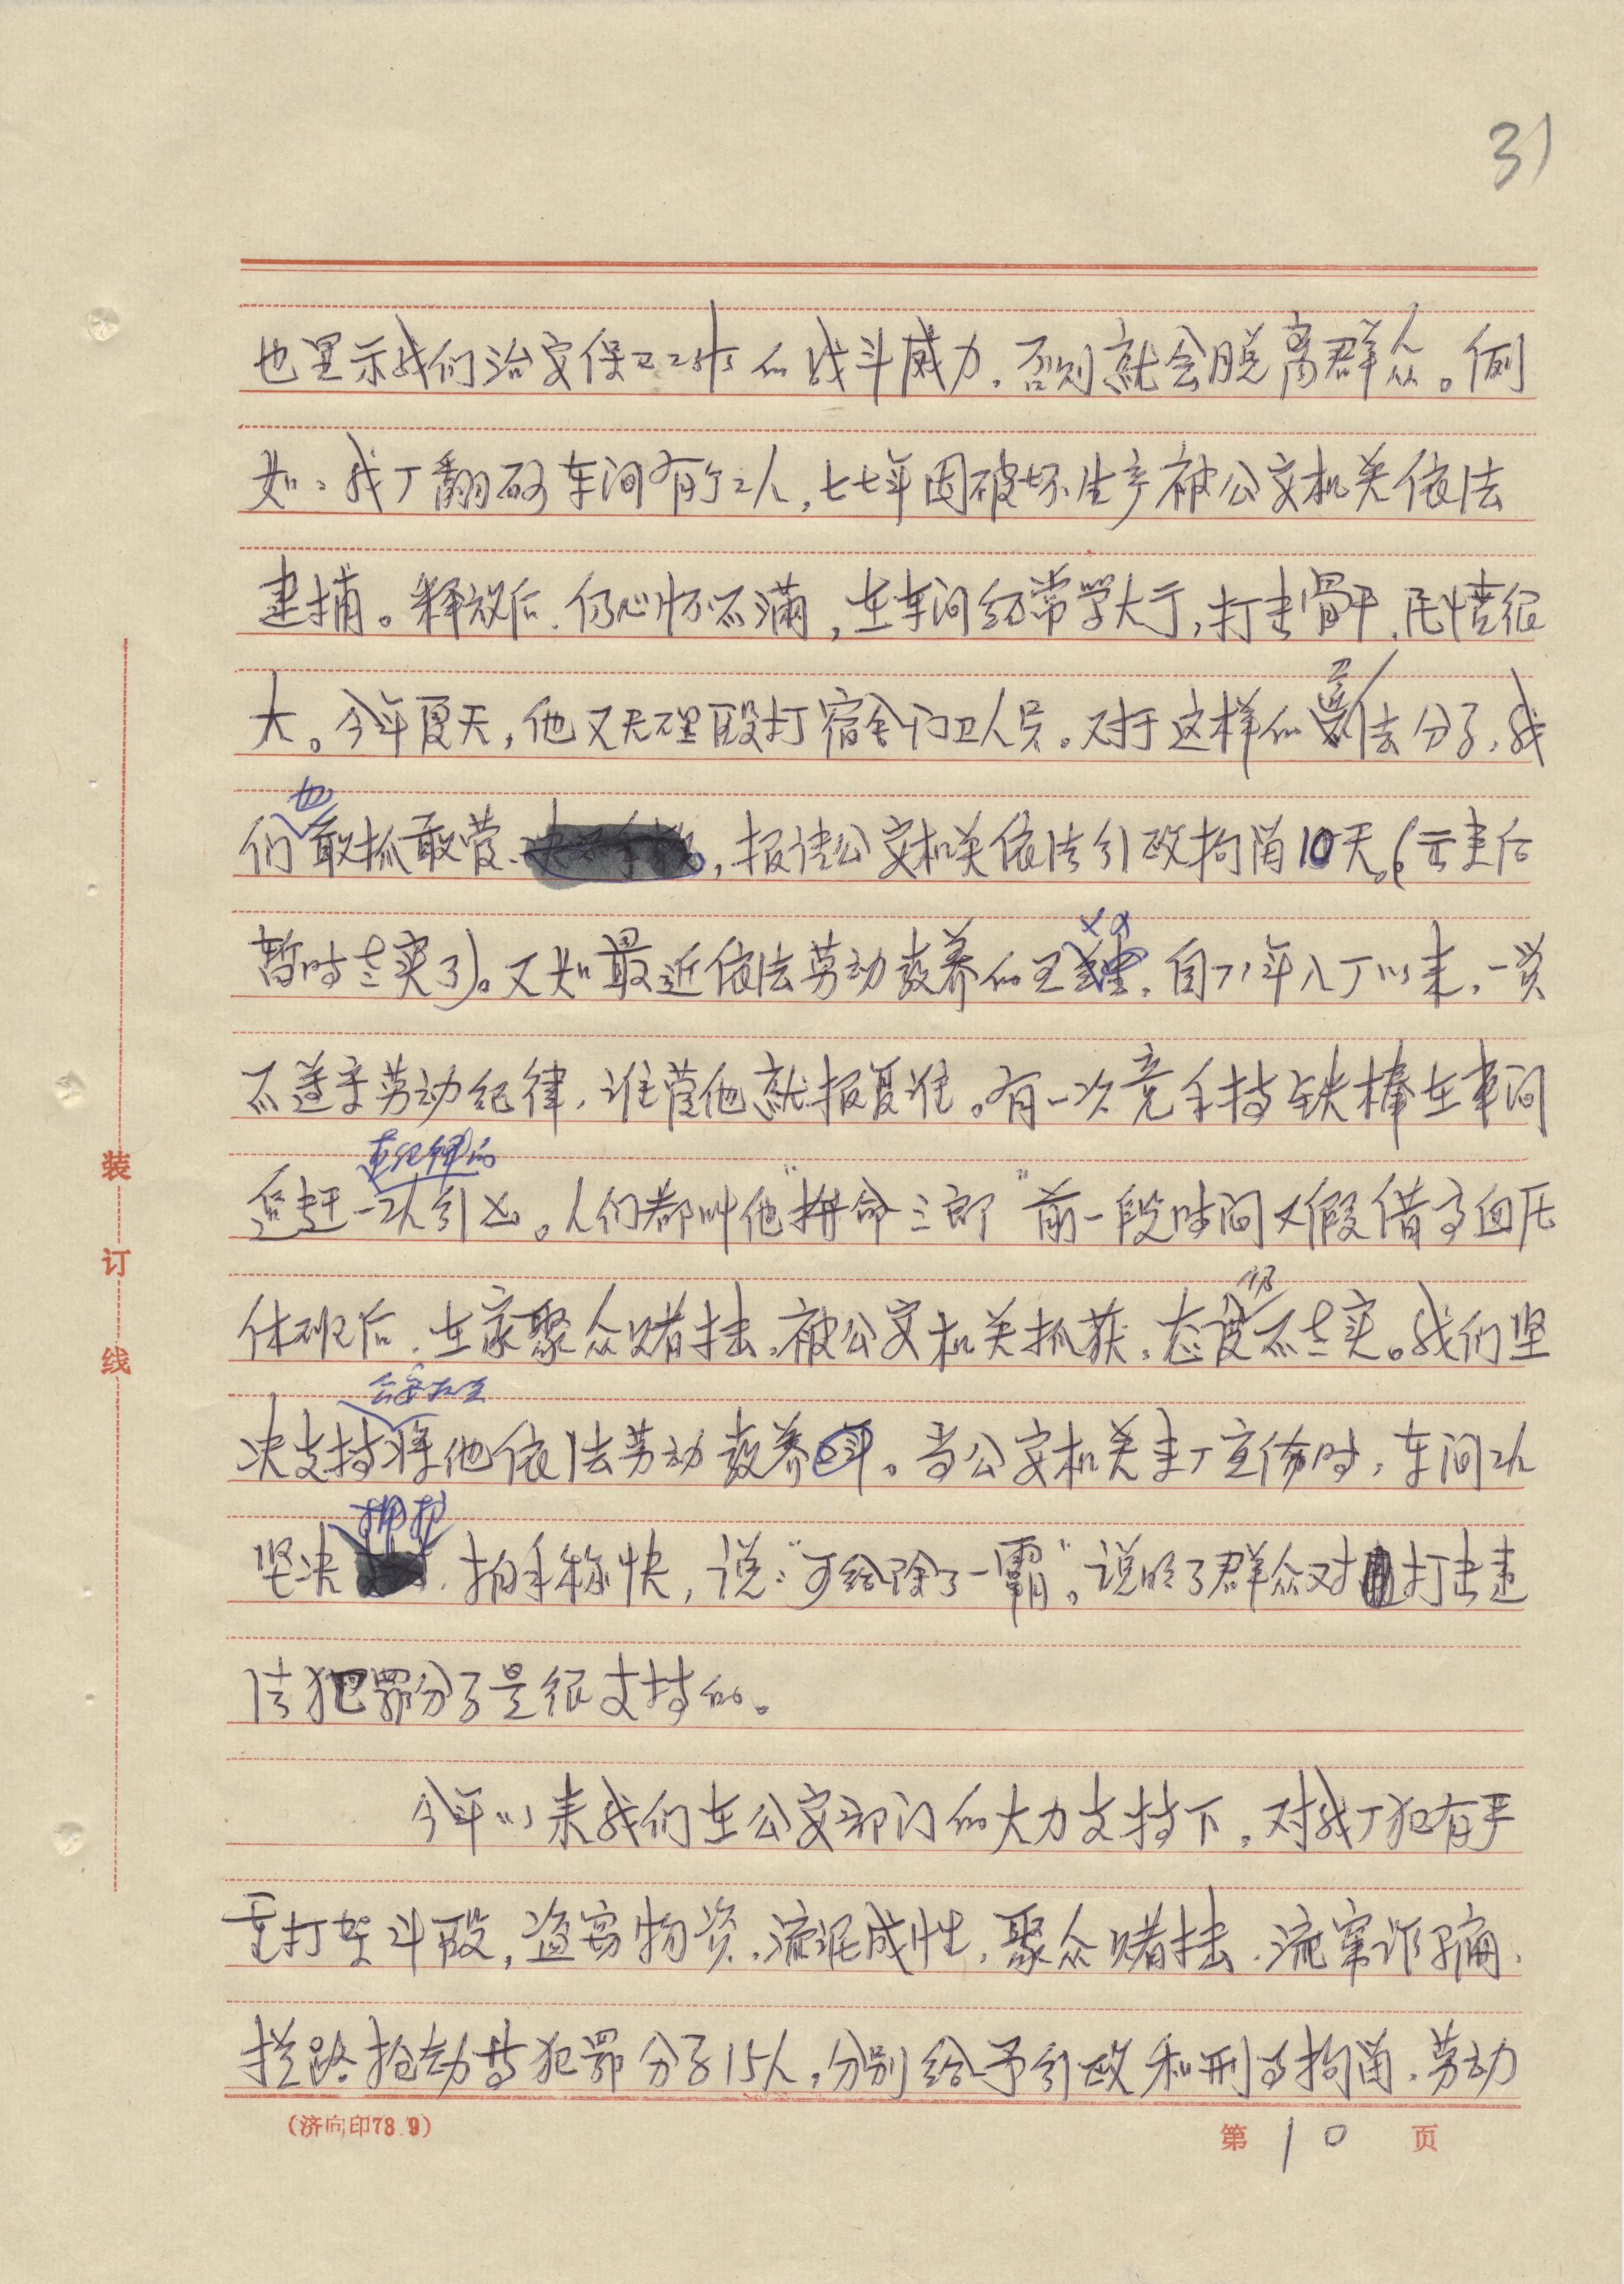 31
也显示我们治安保卫工作的战斗威力，否则就会脱离群众。例
如：我厂翻砂车间有个工人，七七年因破坏生产被公安机关依法
逮捕。释放后，仍心怀不满，在车间经常学大于，打击骨干，民愤很
大。今年夏天，他又无理殴打宿舍门卫人员。对于这样的违法分子，我
们也敢抓敢管，报请公安机关依法行政拘留10天。（云走后
暂时老实了）。又如最近依法劳动教养的王××，自71年入厂以来，一贯
不遵守劳动纪律，谁管他就报复谁。有一次竟手持铁棒在车间
追赶一工人行凶。人们都叫他“拼命三郎”前一段时间又假借高血压
休班后，在家聚众赌抉，被公安机关抓获，态度仍不老实。我们坚
决支持将他依法劳动教养。当公安机关来厂宣布时，车间工人
坚决拥护，拍手称快，说：“可给除了一霸”。说明了群众对打击违
法犯罪分子是很支持的。
今年以来我们在公安部门的大力支持下，对我厂犯有严
重打架斗殴，盗窃物资，流氓成性，聚众赌抉，流窜诈骗，
拦路抢劫等犯罪分子15人，分别给予行政和刑事拘留，劳动
装
订
线
（济向印78.9）
第10页